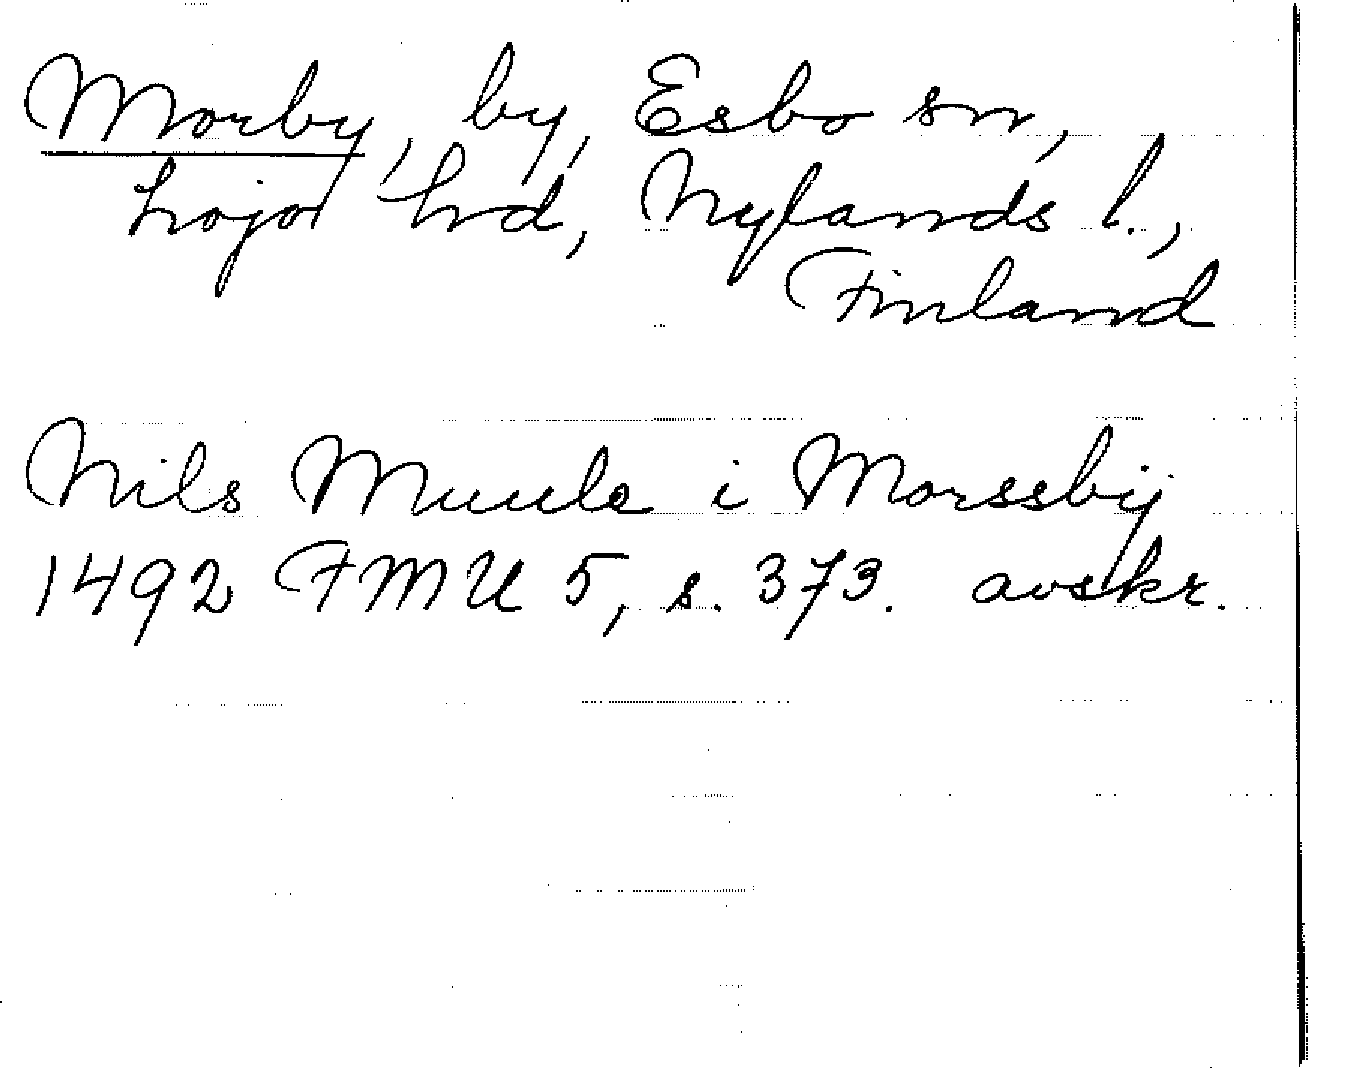 Morby, by, Esbo sn,
Lojo hd, Nylands l.,
Finland
Nils Muule i Morssbÿ
1492 FMU 5, s. 373. avskr.